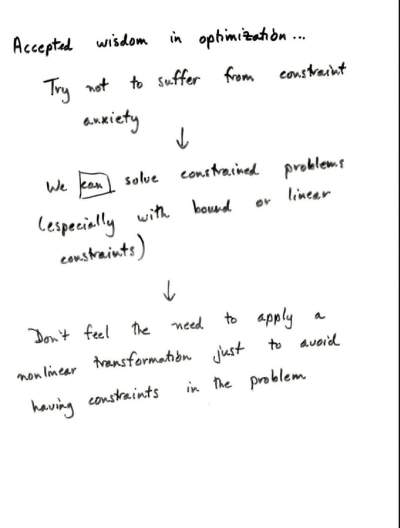 Accepted wisdom in optimization...
Try not to suffer from constraint
anxiety
↓
We can solve constrained problems
(especially with bound or linear
constraints)
↓
Don't feel the need to apply a
nonlinear transformation just to avoid
having constraints in the problem